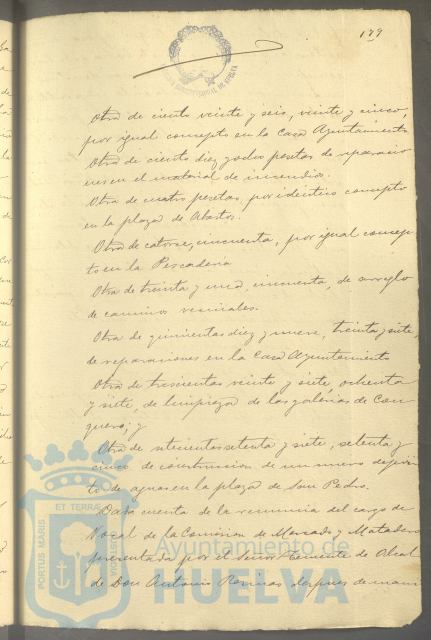 179
Otra de ciento veinte y seis, veinte y cinco,
por igual concepto en la Casa Ayuntamiento
Otra de ciento diez y ocho pesetas de reparacio
nes en el material de incendios.
Otra de cuatro pesetas, por idéntico concepto
en la plaza de Abastos.
Otra de catorce, cincuenta, por igual concep-
to en la Pescaderia
Otra de treinta y una, cincuenta, de arreglo
de caminos vecinales.
Otra de quinientas diez y nueve, treinta y siete,
de reparaciones en la Casa Ayuntamiento
Otra de trescientas veinte y siete, ochenta
y siete, de limpieza de las galerias de Con
quero; y
Otra de setecientas setenta y siete, setenta y
cinco de construccion de un nuevo deposi
to de aguas en la plaza de San Pedro.
Dada cuenta de la renuncia del cargo de
Vocal de la Comision de Mercado y Matadero
presentada por el Señor Teniente de Alcal
de Don Antonio despues de
Ayuntamiento de
HUELVA
PORTUS MARIS ET TERRAE